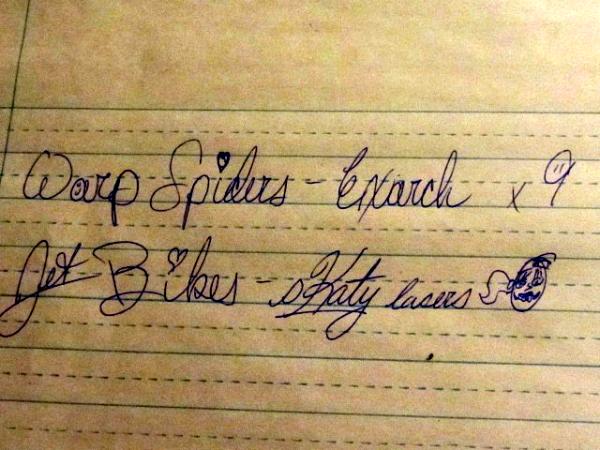 Warp Spiders - Exarch x 9
Jet Bikes - sKaty lasers